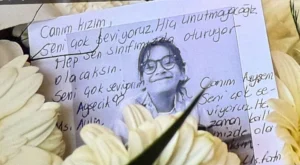 Canım kızım,
Seni çok seviyoruz. Hiç unutmayacağız,
Hep sen sınıfımızda oturuyor
olacaksın.
Seni çok seviyorum
Ayşecik
Ms. Aylin
Canım Ayşem
Seni çok se-
viyoruz. He
zaman kal
mizde ola
Ms. Fatı